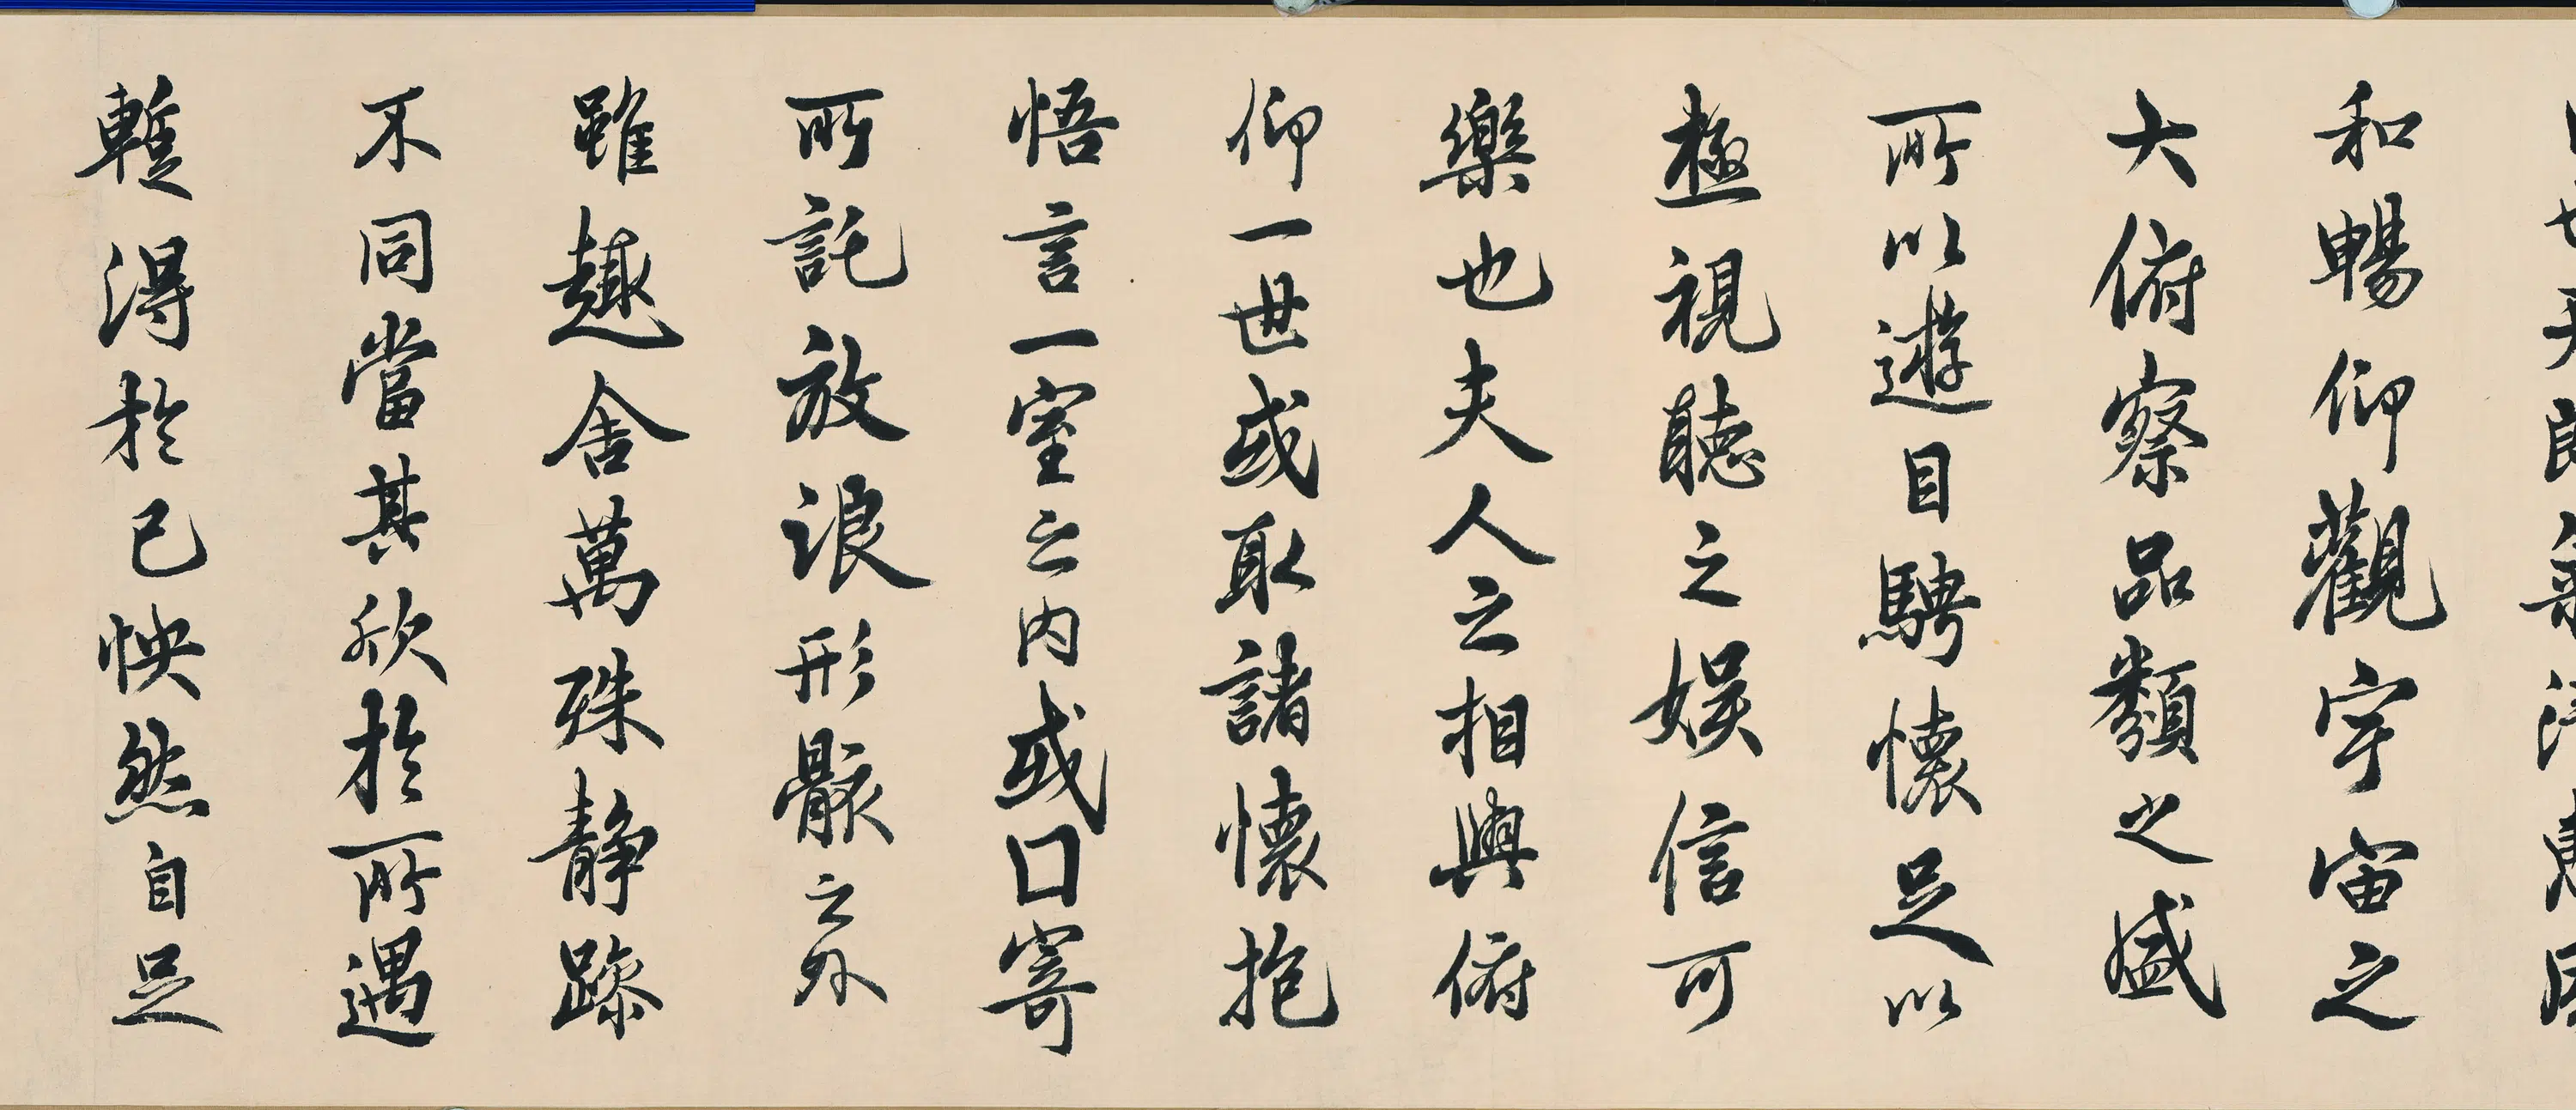 和暢仰觀宇宙之
大俯察品類之盛
所以遊目騁懷足以
極視聽之娛信可
樂也夫人之相與俯
仰一世或取諸懷抱
悟言一室之内或口寄
所託放浪形骸之外
雖趣舍萬殊静躁
不同當其欣於所遇
暫得於己怏然自足